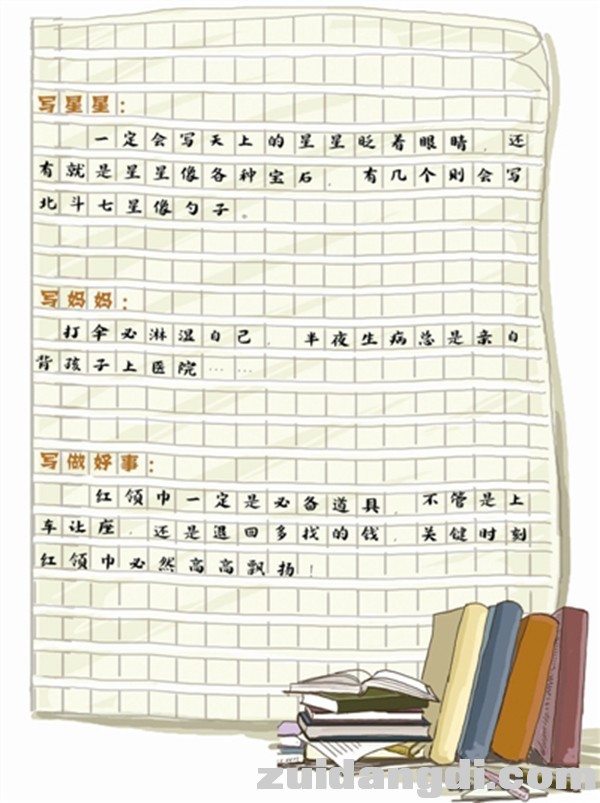 写星星：
一定会写天上的星星眨着眼睛，还
有就是星星像各种宝石，有几个则会写
北斗七星像勺子。
写妈妈：
打伞必淋湿自己，半夜生病总是亲自
背孩子上医院……
写做好事：
红领巾一定是必备道具，不管是上
车让座，还是退回多找的钱，关键时刻
红领巾必然高高飘扬！
zuidangdi.com